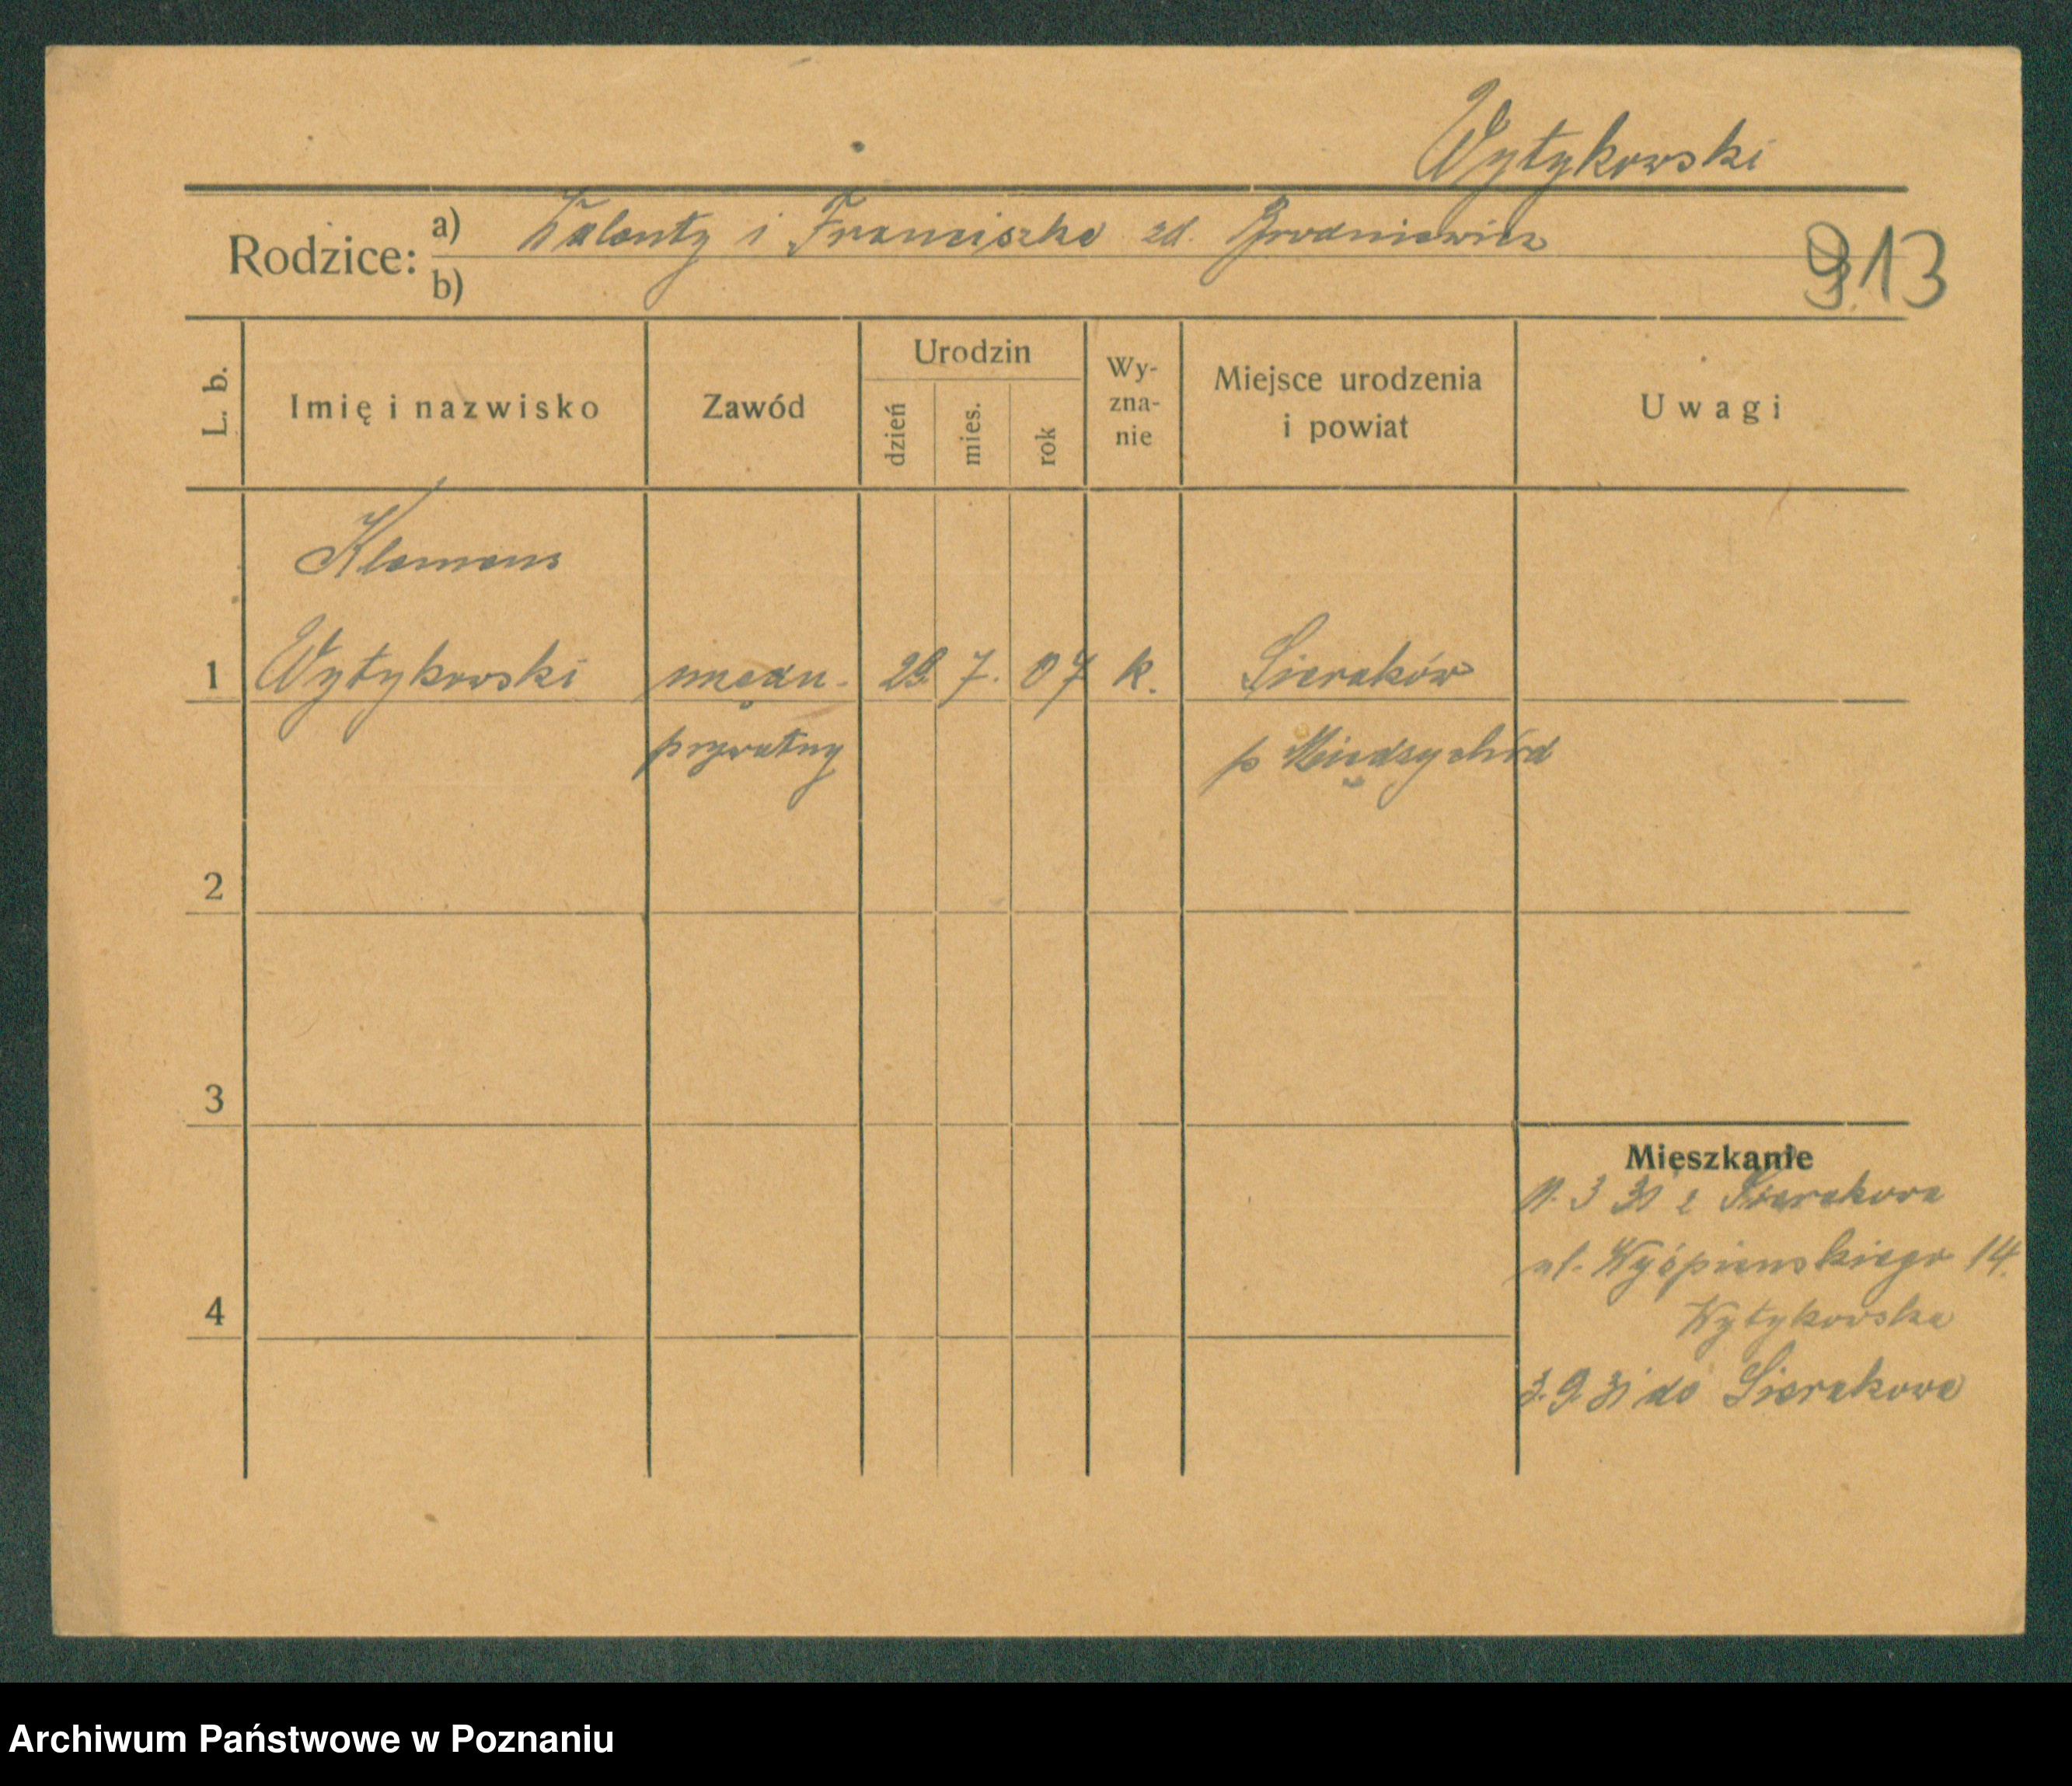 Wytykowski
Rodzice:
a) Walenty i Franciszka zd. Brodniewicz
b)
913
L. b.
Imię i nazwisko
Zawód
Urodzin
dzień
mies.
rok
Wy-
zna-
nie
Miejsce urodzenia
i powiat
Uwagi
Klemens
1 Wytykowski urzędn. 29. 7. 07 k. Sieraków
prywatny p Międzychód
2
3
Mieszkanie
3 31 z Sierakowa
ul. Wyśpianskiego 14.
4
Wytykowska
3.9.31 do Sierakowa
Archiwum Państwowe w Poznaniu